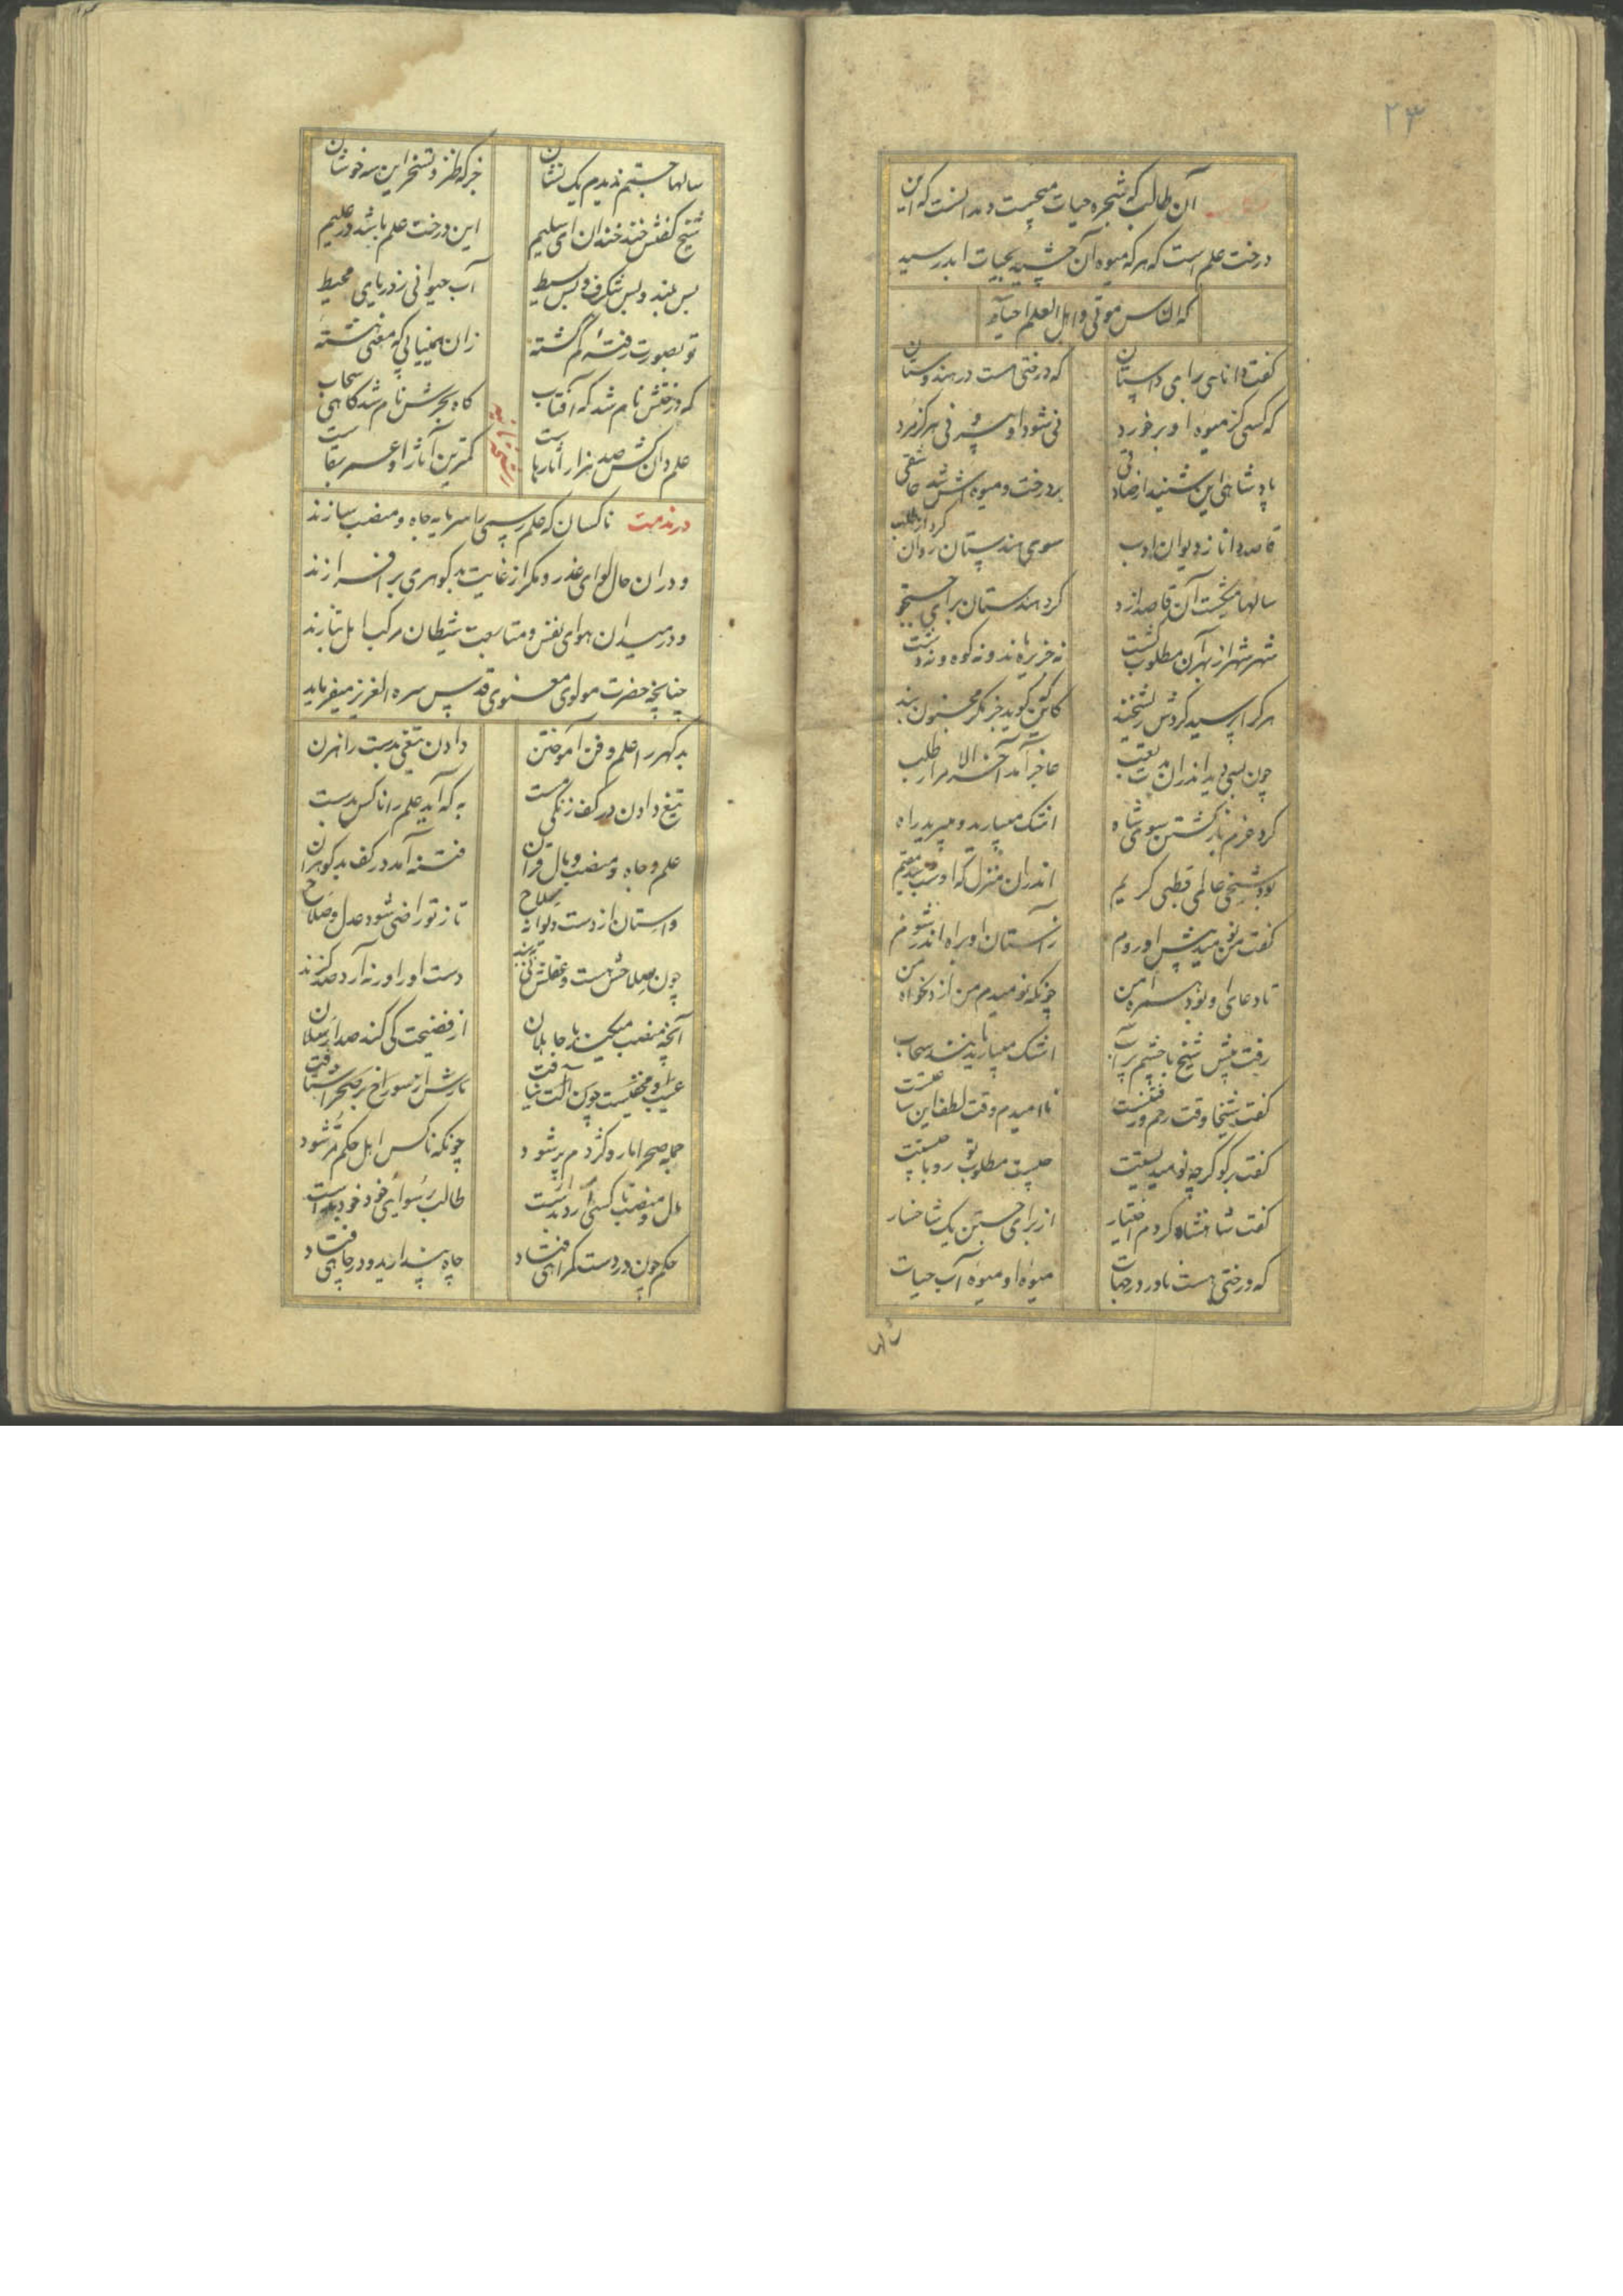 ۲۳
آن طالب که شجره حیات میجست و ندانست که این
درخت علم است که هر که میوه آن چشید بحیات ابد رسید
که الناس موتی و اهل العلم احیاء
گفت دانایی برای داستان که درختی هست در هندوستان
که کسی کز میوه او بر خورد نی شود او پیر و نی هرگز مرد
پادشاهی این شنید از صادقی بر درخت و میوه اش شد عاشقی
قاصد دانا ز دیوان ادب سوی هندستان روان کرد از طلب
سالها میگشت آن قاصد ازو گرد هندستان برای جستجو
شهر شهر از بهر آن مطلوب گشت نه جزیره ماند و نه کوه و نه دشت
هر کرا پرسید کردش ریشخند کاین که گوید جز مگر مجنون بند
چون بسی دید اندران تعب عاجز آمد آخر الامر از طلب
کرد عزم بازگشتن سوی شاه اشک میبارید و میبرید راه
بود شیخی عالمی قطبی کریم اندران منزل که او شد ندیم
گفت من نومید پیش او روم ز آستان او براه اندر شوم
تا دعای او بود همراه من چونکه نومیدم من از دلخواه من
رفت پیش شیخ با چشم پر آب اشک میبارید مانند سحاب
گفت شیخا وقت رحم و رقتست ناامیدم وقت لطف این ساعتست
گفت بر گو گر چه نومیدیستت چیست مطلوب تو رو با چیستت
گفت شاهنشاه کردم اختیار از برای جستن یک شاخسار
که درختی هست نادر در جهات میوه او میوه آب حیات
سالها
سالها جستم ندیدم یک نشان جز که طنز و تسخر این سر خوشان
شیخ گفتش خنده خندان ای سلیم این درخت علم باشد در علیم
بس بلند و بس شگرف و بس بسیط آب حیوانی ز دریای محیط
تو بصورت رفته گم گشته زان نمییابی که معنی هشته
که درختش نام شد گه آفتاب گاه بحرش نام شد گاهی سحاب
علم دان کش صد هزار آثار هاست کمترین آثار او عمر بقاست
در مذمت ناکسان که علم رسمی را سرمایه جاه و منصب سازند
و دران حال لوای غدر و مکر از غایت بدگوهری بر افرازند
و در میدان هوای نفس و متابعت شیطان مرکب امل بتازند
چنانچه حضرت مولوی معنوی قدس سره العزیز میفرماید
بدگهر را علم و فن آموختن دادن تیغی بدست راهزن
تیغ دادن در کف زنگی مست به که آید علم را ناکس بدست
علم و جاه و منصب و مال و قران فتنه آمد در کف بدگوهران
واستان از دست دیوانه سلاح تا ز تو راضی شود عدل و صلاح
چون سلاحش هست و عقلش نی ببند دست او را ورنه آرد صد گزند
آنچه منصب میکند با جاهلان از فضیحت کی کند صد ارسلان
عیب او مخفیست چون آلت نیافت مارش از سوراخ بر صحرا شتافت
جمله صحرا مار و کژدم پر شود چونکه ناکس اهل حکم مر شود
مال و منصب ناکسی کآرد بدست طالب رسوائی خود خود بدست
حکم چون در دست گمراهی فتاد جاه پندارید و در چاهی فتاد